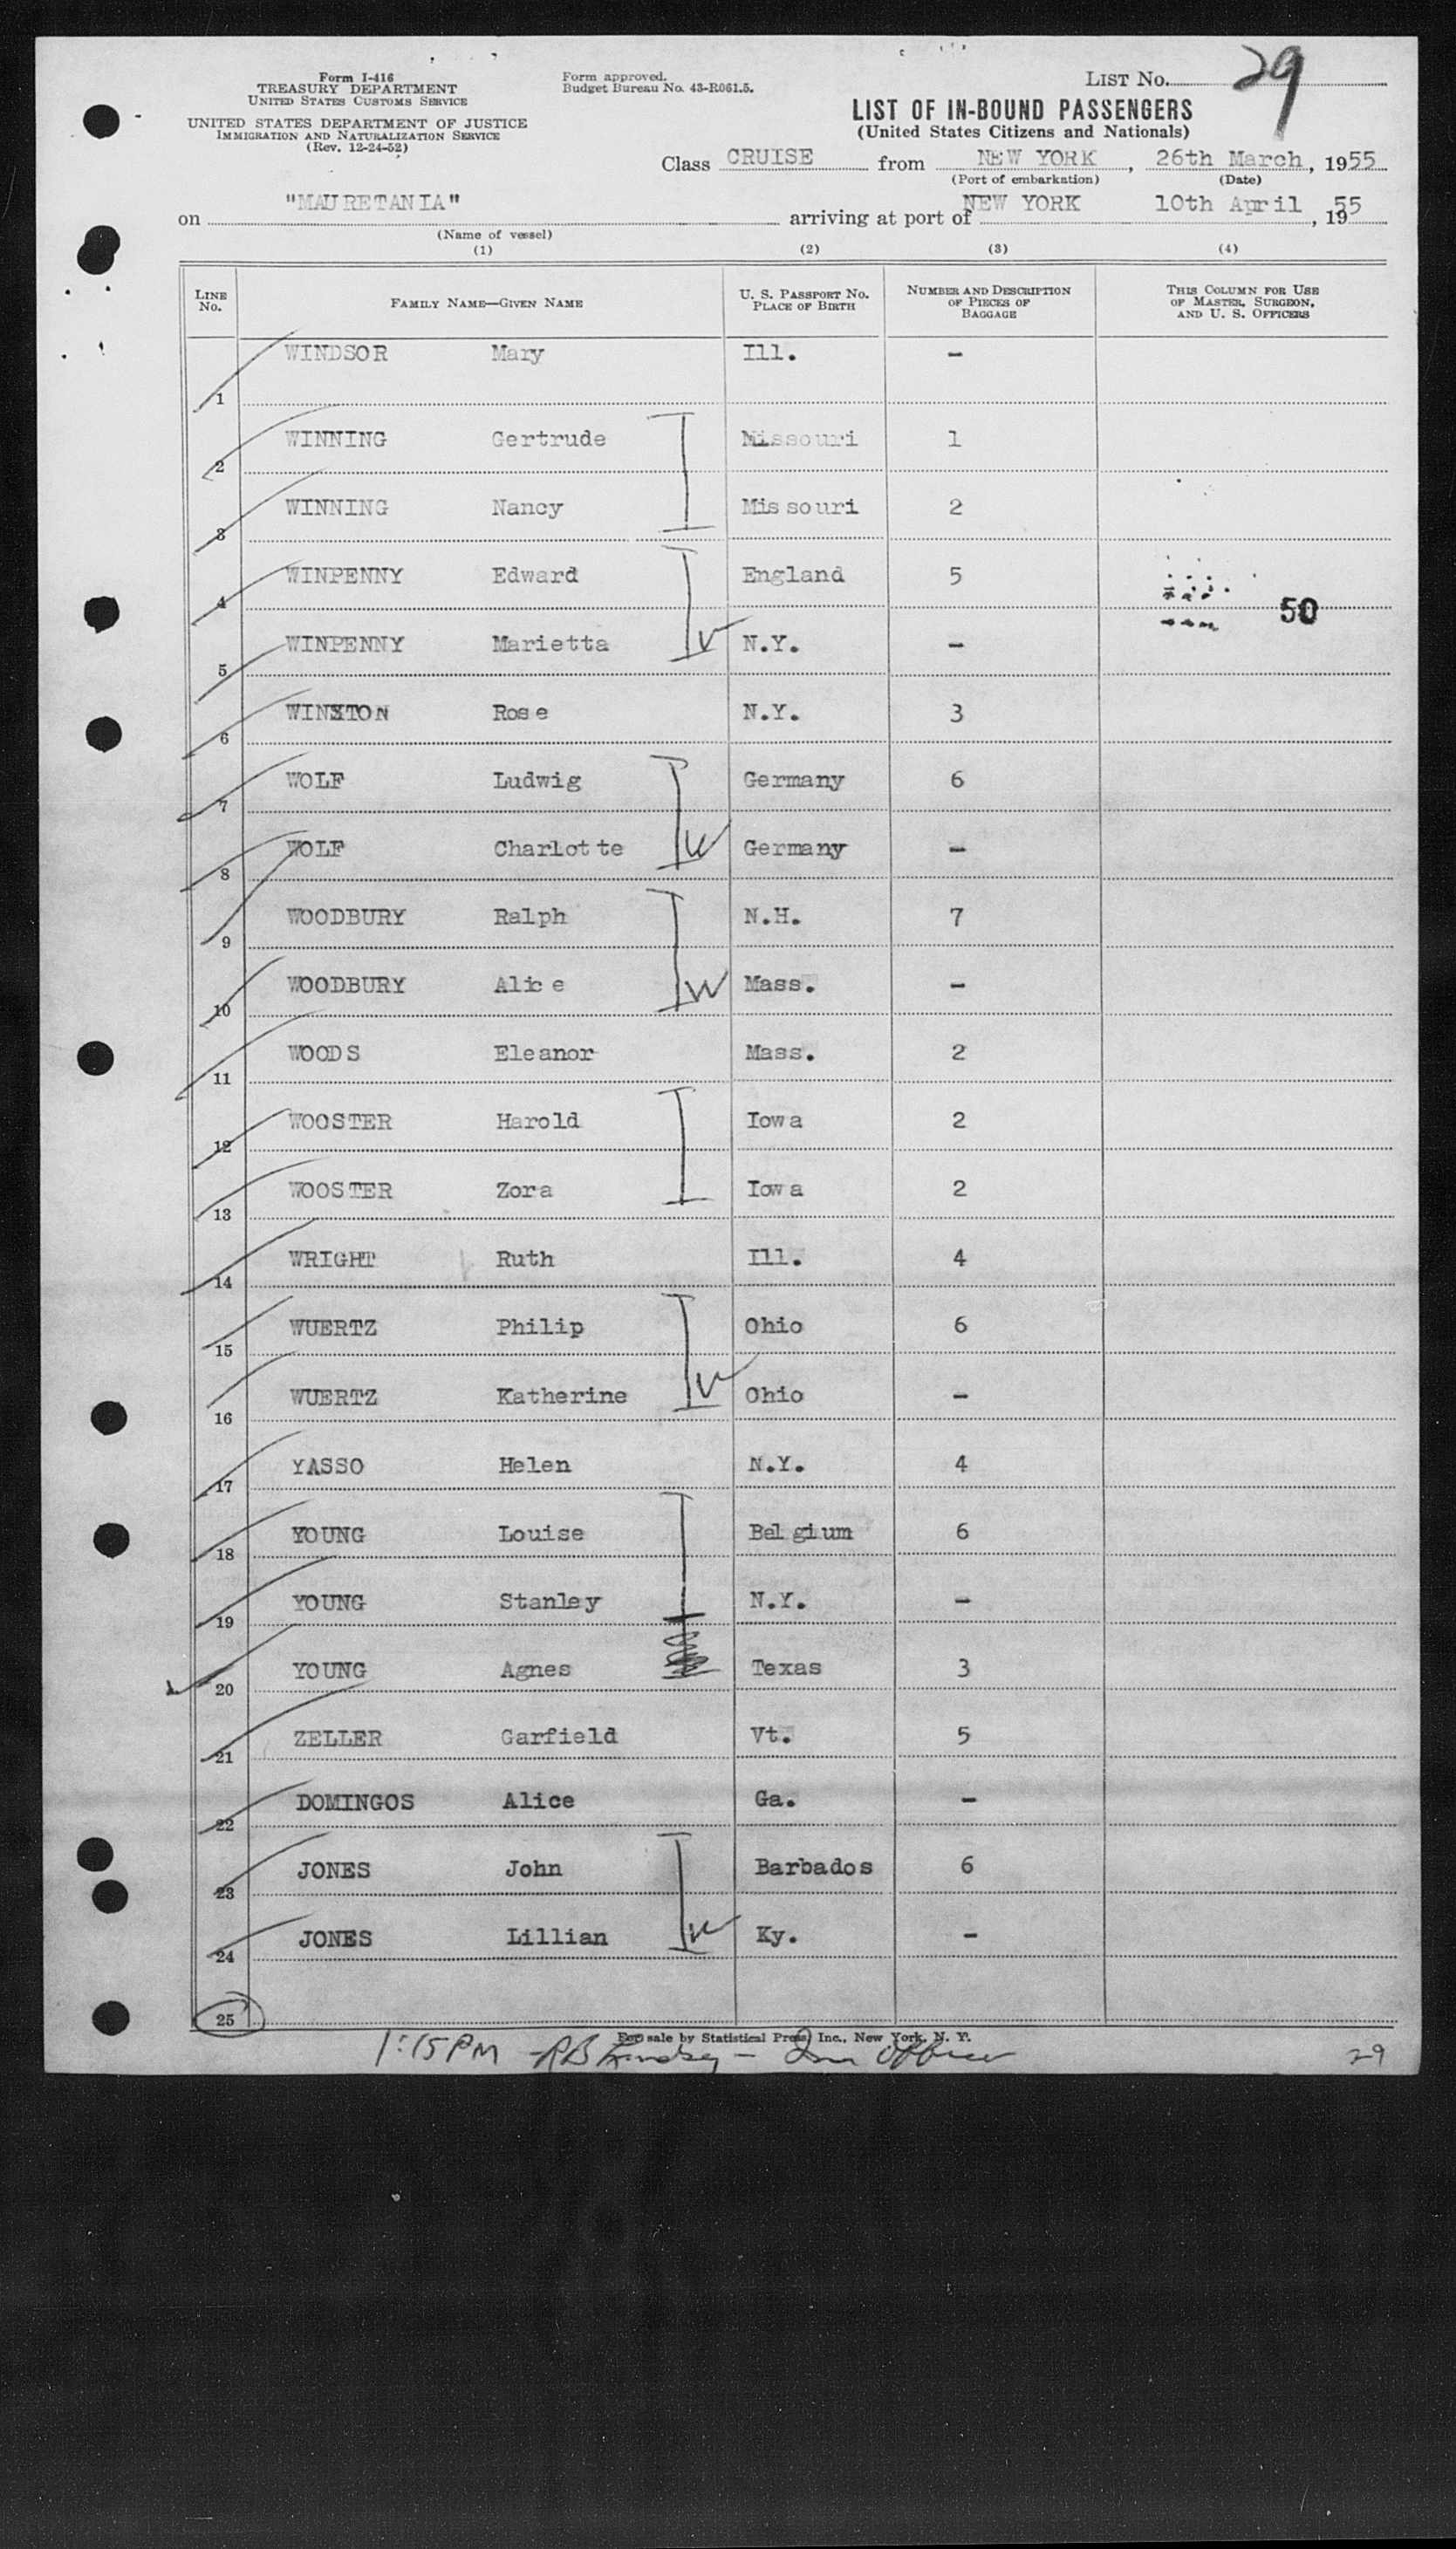 Form I-416
TREASURY DEPARTMENT
UNITED STATES CUSTOMS SERVICE
UNITED STATES DEPARTMENT OF JUSTICE
IMMIGRATION AND NATURALIZATION SERVICE
(Rev. 12-24-52)
Form approved.
Budget Bureau No. 43-R061.5.
LIST NO. 29
LIST OF IN-BOUND PASSENGERS
(United States Citizens and Nationals)
Class CRUISE from NEW YORK, 26th March, 1955
(Port of embarkation) (Date)
on "MAURETANIA" arriving at port of NEW YORK 10th April, 1955
(Name of vessel)
(1) (2) (3) (4)
LINE NO. FAMILY NAME—GIVEN NAME U. S. PASSPORT NO. PLACE OF BIRTH NUMBER AND DESCRIPTION OF PIECES OF BAGGAGE THIS COLUMN FOR USE OF MASTER, SURGEON, AND U. S. OFFICERS
1 WINDSOR Mary Ill. -
2 WINNING Gertrude Missouri 1
3 WINNING Nancy Missouri 2
4 WINPENNY Edward England 5 50
5 WINPENNY Marietta N.Y. -
6 WINXTON Rose N.Y. 3
7 WOLF Ludwig Germany 6
8 WOLF Charlotte Germany -
9 WOODBURY Ralph N.H. 7
10 WOODBURY Alice Mass. -
11 WOODS Eleanor Mass. 2
12 WOOSTER Harold Iowa 2
13 WOOSTER Zora Iowa 2
14 WRIGHT Ruth Ill. 4
15 WUERTZ Philip Ohio 6
16 WUERTZ Katherine Ohio -
17 YASSO Helen N.Y. 4
18 YOUNG Louise Belgium 6
19 YOUNG Stanley N.Y. -
20 YOUNG Agnes Texas 3
21 ZELLER Garfield Vt. 5
22 DOMINGOS Alice Ga. -
23 JONES John Barbados 6
24 JONES Lillian Ky. -
25
For sale by Statistical Press, Inc., New York, N. Y.
1:15PM
29